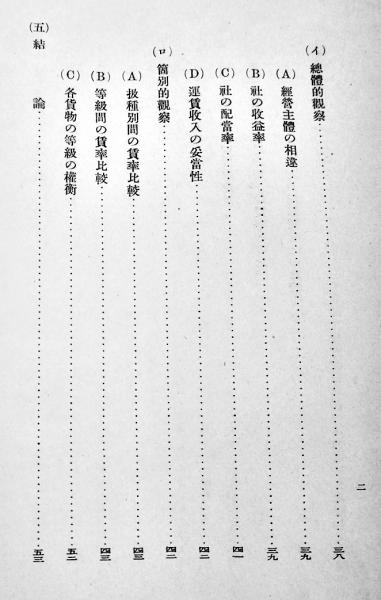 (イ) 總體的觀察……三八
(A) 經營主體の相違……三九
(B) 社の收益率……三九
(C) 社の配當率……四一
(D) 運賃收入の妥當性……四二
(ロ) 箇別的觀察……四二
(A) 扱種別間の賃率比較……四三
(B) 等級間の賃率比較……四三
(C) 各貨物の等級の權衡……五二
(五) 結論……五三
二